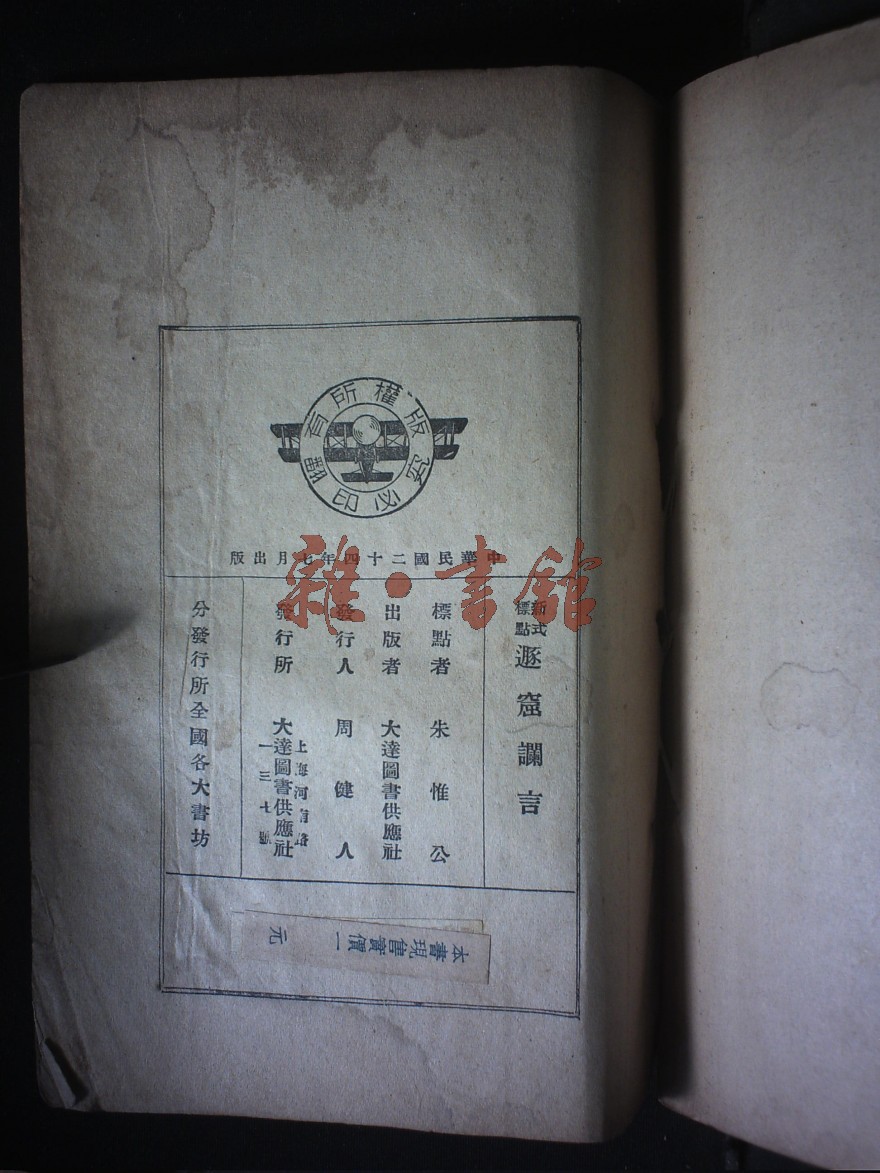 版權所有
翻印必究
中華民國二十四年七月出版
新式
標點
遯窟讕言
標點者 朱惟公
出版者 大達圖書供應社
發行人 周健人
發行所 大達圖書供應社
上海河南路
一三七號
分發行所全國各大書坊
本書現售實價一元
雜·書館